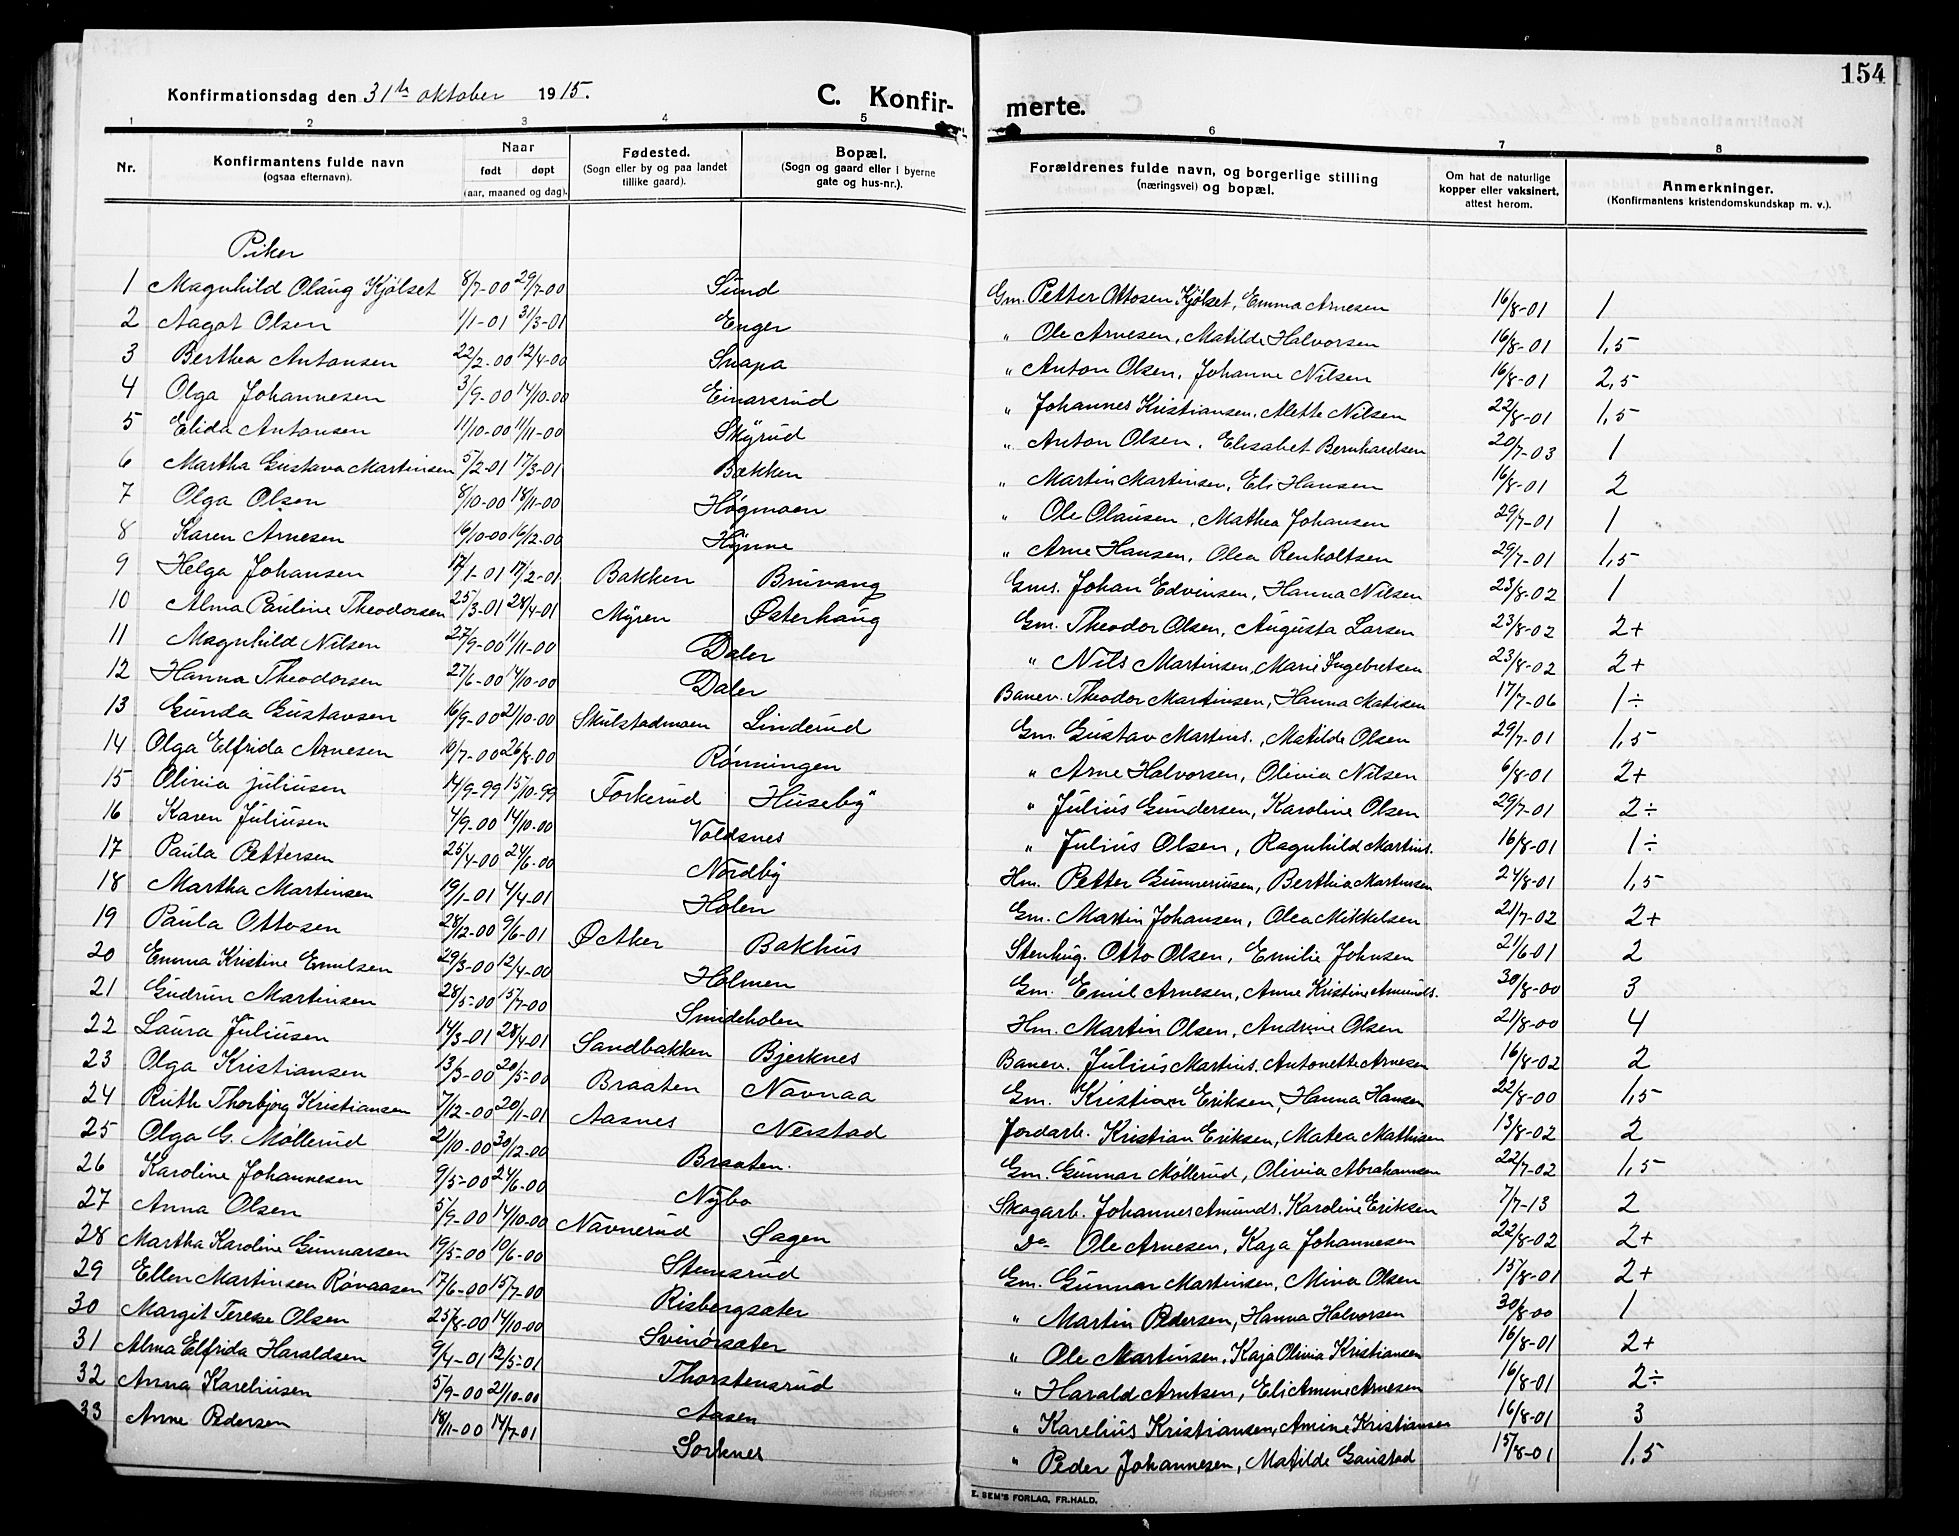 154
Konfirmationsdag den 31te oktober 1915.
C. Konfirmerte.
1 2 3 4 5 6 7 8
Nr. Konfirmantens fulde navn (ogsaa efternavn). Naar født døpt (aar, maaned og dag). Fødested. (Sogn eller by og paa landet tillike gaard). Bopæl. (Sogn og gaard eller i byerne gate og hus-nr.). Forældrenes fulde navn, og borgerlige stilling (næringsvei) og bopæl. Om hat de naturlige kopper eller vaksinert, attest herom. Anmerkninger. (Konfirmantens kristendomskundskap m. v.).
Piker
1 Magnhild Olaug Kjølset 8/7-00 29/7-00 Sund Gm. Petter Ottosen Kjølset, Emma Arnesen 16/8-01 1
2 Aagot Olsen 1/1-01 31/3-01 Enger " Ole Arnesen, Matilde Halvorsen 16/8-01 1,5
3 Berthea Antonsen 22/2-00 12/4-00 Snapa " Anton Olsen, Johanne Nilsen 16/8-01 2,5
4 Olga Johannesen 3/9-00 14/10-00 Einarsrud " Johannes Kristiansen, Alette Nilsen 22/8-01 1,5
5 Elida Antonsen 11/10-00 11/11-00 Skyrud " Anton Olsen, Elisabet Bernhardsen 20/7-03 1
6 Martha Gustava Martinsen 5/2-01 17/3-01 Bakken " Martin Martinsen, Eli Hansen 16/8-01 2
7 Olga Olsen 8/10-00 18/11-00 Høgmoen " Ole Olausen, Mathea Johansen 29/7-01 1
8 Karen Arnesen 16/10-00 16/12-00 Hynne " Arne Hansen, Olea Renholtsen 29/7-01 1,5
9 Helga Johansen 17/1-01 17/2-01 Bakken Bruvang Gms. Johan Edvinsen, Hanna Nilsen 23/8-02 1
10 Alma Pauline Theodorsen 25/3-01 28/4-01 Myren Østerhaug Gm. Theodor Olsen, Augusta Larsen 23/8-02 2+
11 Magnhild Nilsen 27/9-00 11/11-00 Daler " Nils Martinsen, Marie Ingebretsen 23/8-02 2+
12 Hanna Theodorsen 27/6-00 14/10-00 Daler Banev. Theodor Martinsen, Hanna Matisen 17/7-06 1÷
13 Gunda Gustavsen 16/9-00 21/10-00 Skulstadmoen Linderud Gm. Gustav Martins., Matilde Olsen 29/7-01 1,5
14 Olga Elfrida Arnesen 19/7-00 26/8-00 Rønningen " Arne Halvorsen, Olivia Nilsen 6/8-01 2+
15 Olivia Juliusen 14/9-99 15/10-99 Forkerud Huseby " Julius Gundersen, Karoline Olsen 29/7-01 2÷
16 Karen Juliusen 4/9-00 14/10-00 Voldsnes " Julius Olsen, Ragnhild Martins. 16/8-01 1÷
17 Paula Pettersen 25/4-00 24/6-00 Nordby Hm. Petter Gunneriusen, Berthea Martinsen 24/8-01 1,5
18 Martha Martinsen 19/1-01 4/4-01 Holen Gm. Martin Johansen, Olea Mikkelsen 21/7-02 2+
19 Paula Ottosen 28/12-00 9/6-01 Øctker Bakhus Stenhug. Otto Olsen, Emilie Johnsen 21/6-01 2
20 Emma Kristine Emilsen 29/3-00 12/4-00 Holmen Gm. Emil Arnesen, Anne Kristine Amunds. 30/8-00 3
21 Gudrun Martinsen 28/5-00 15/7-00 Smideholen Hm. Martin Olsen, Andrine Olsen 21/8-00 4
22 Laura Juliusen 14/3-01 28/4-01 Sandbakken Bjerknes Banev. Julius Martins. Antonette Arnesen 16/8-02 2
23 Olga Kristiansen 13/3-00 20/5-00 Braaten Navnaa Gm. Kristian Eriksen, Hanna Hansen 22/8-00 1,5
24 Ruth Thorbjørg Kristiansen 7/12-00 20/1-01 Aasnes Nerstad Jordarb. Kristian Eriksen, Matea Mathisen 13/8-02 2
25 Olga G. Møllerud 21/10-00 30/12-00 Braaten. Gm. Gunnar Møllerud, Olivia Abrahamsen 22/7-02 1,5
26 Karoline Johannesen 9/5-00 24/6-00 Nybo Skogarb. Johannes Amunds. Karoline Eriksen 7/7-13 2
27 Anna Olsen 5/9-00 14/10-00 Navnerud Sagen Do. Ole Arnesen, Kaja Johannesen 22/8-02 2+
28 Martha Karoline Gunnarsen 19/5-00 10/6-00 Stensrud Gm. Gunnar Martinsen, Mina Olsen 15/8-01 2+
29 Ellen Martinsen Røvaasen 17/6-00 15/7-00 Risbergsæter " Martin Pedersen, Hanna Halvorsen 30/8-00 1
30 Margit Terese Olsen 25/8-00 14/10-00 Svinørsæter " Ole Martinsen, Kaja Olivia Kristiansen 16/8-01 2+
31 Alma Elfrida Haraldsen 9/4-01 12/5-01 Thorstensrud " Harald Arntsen, Eli Amine Arnesen 16/8-01 2÷
32 Anna Kareliusen 5/9-00 21/10-00 Aasen " Karelius Kristiansen, Amine Kristiansen 16/8-01 3
33 Anne Pedersen 18/11-00 14/7-01 Sorknes " Peder Johannesen, Matilde Gaustad 15/8-01 1,5
E. SEM'S FORLAG, FR.HALD.